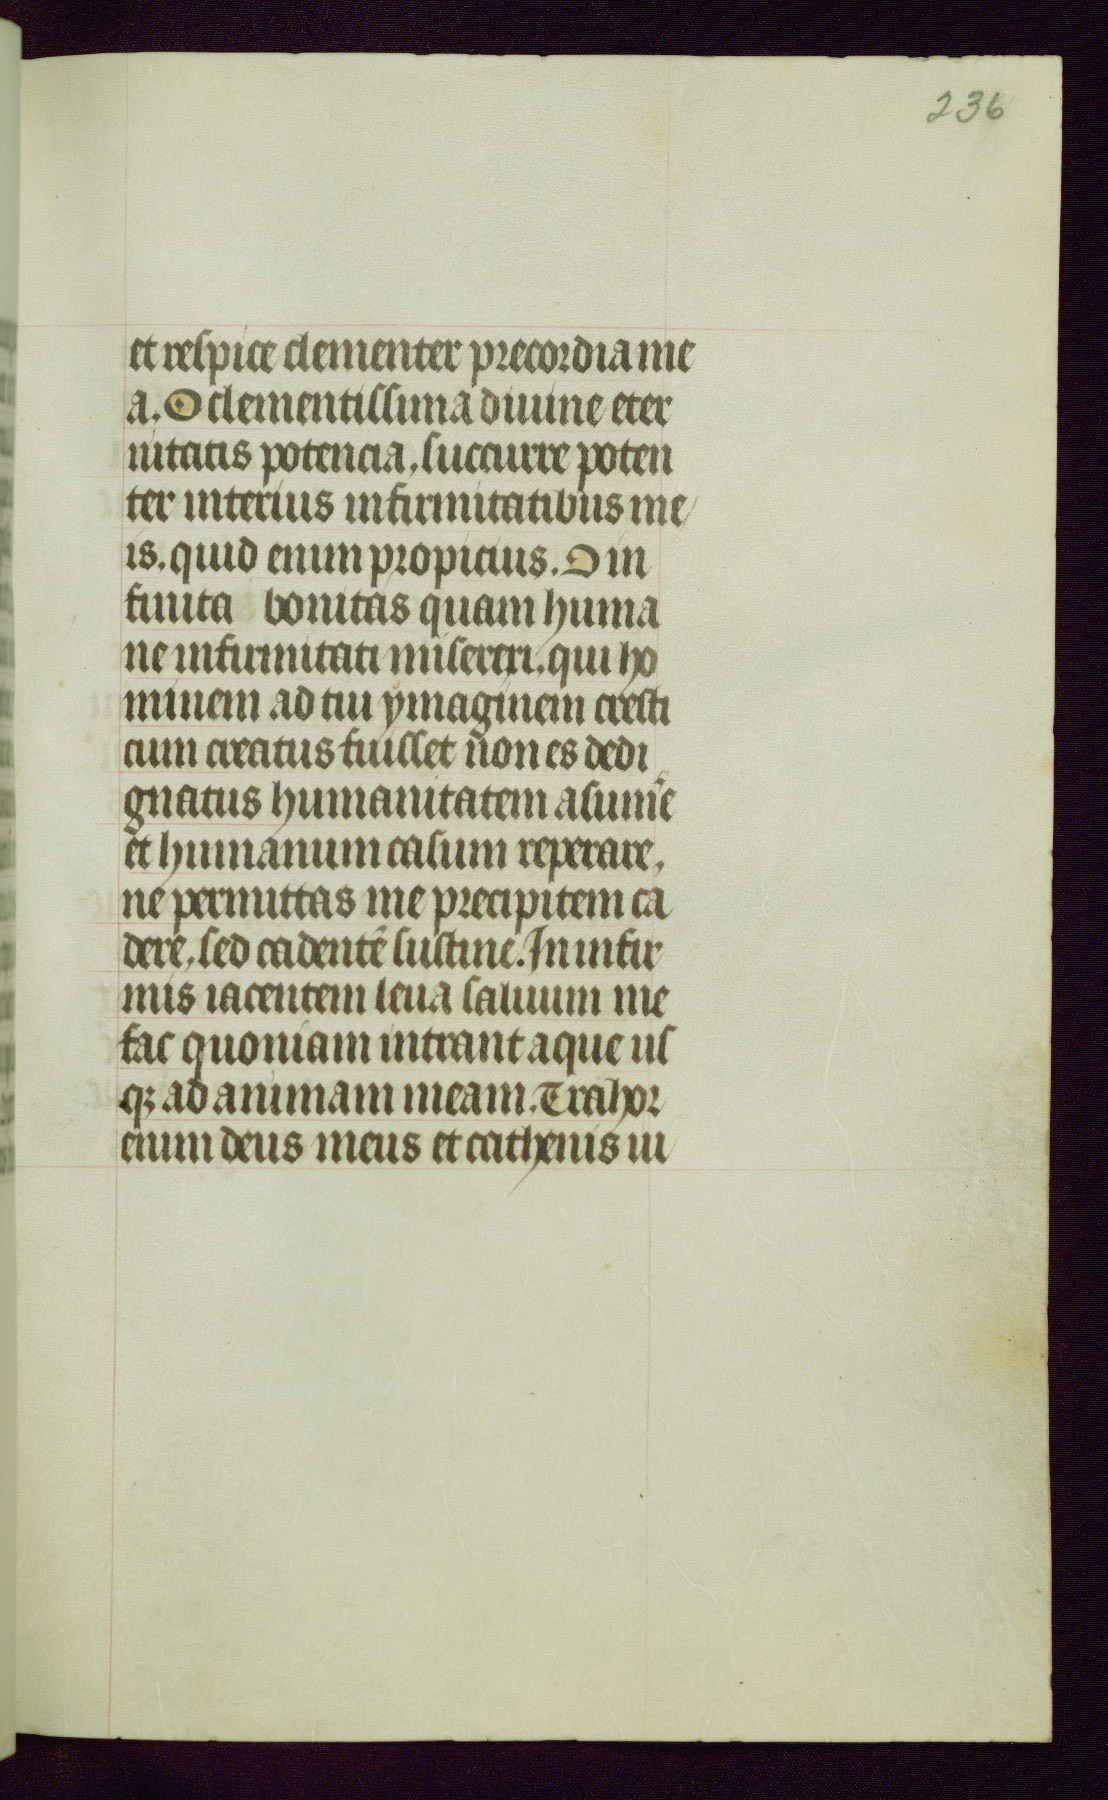 236
et respice clementer precordia me
a. O clementissima diuine eter
nitatis potencia, succurre poten
ter interius infirmitatibus me/
is. quid enim propicius. O in
finita bonitas quam huma
ne infirmitati misereri. qui ho
minem ad tui ymaginem cresti
cum creatus fuisset non es dedi
gnatus humanitatem asum̃e
et humanum casum reperare,
ne permittas me precipitem ca
dere, sed cadentē sustine. In infir
mis iacentem leua saluum me
fac quoniam intrant aque us
qꝫ ad animam meam. Trahor
enim deus meus et cathenis ui